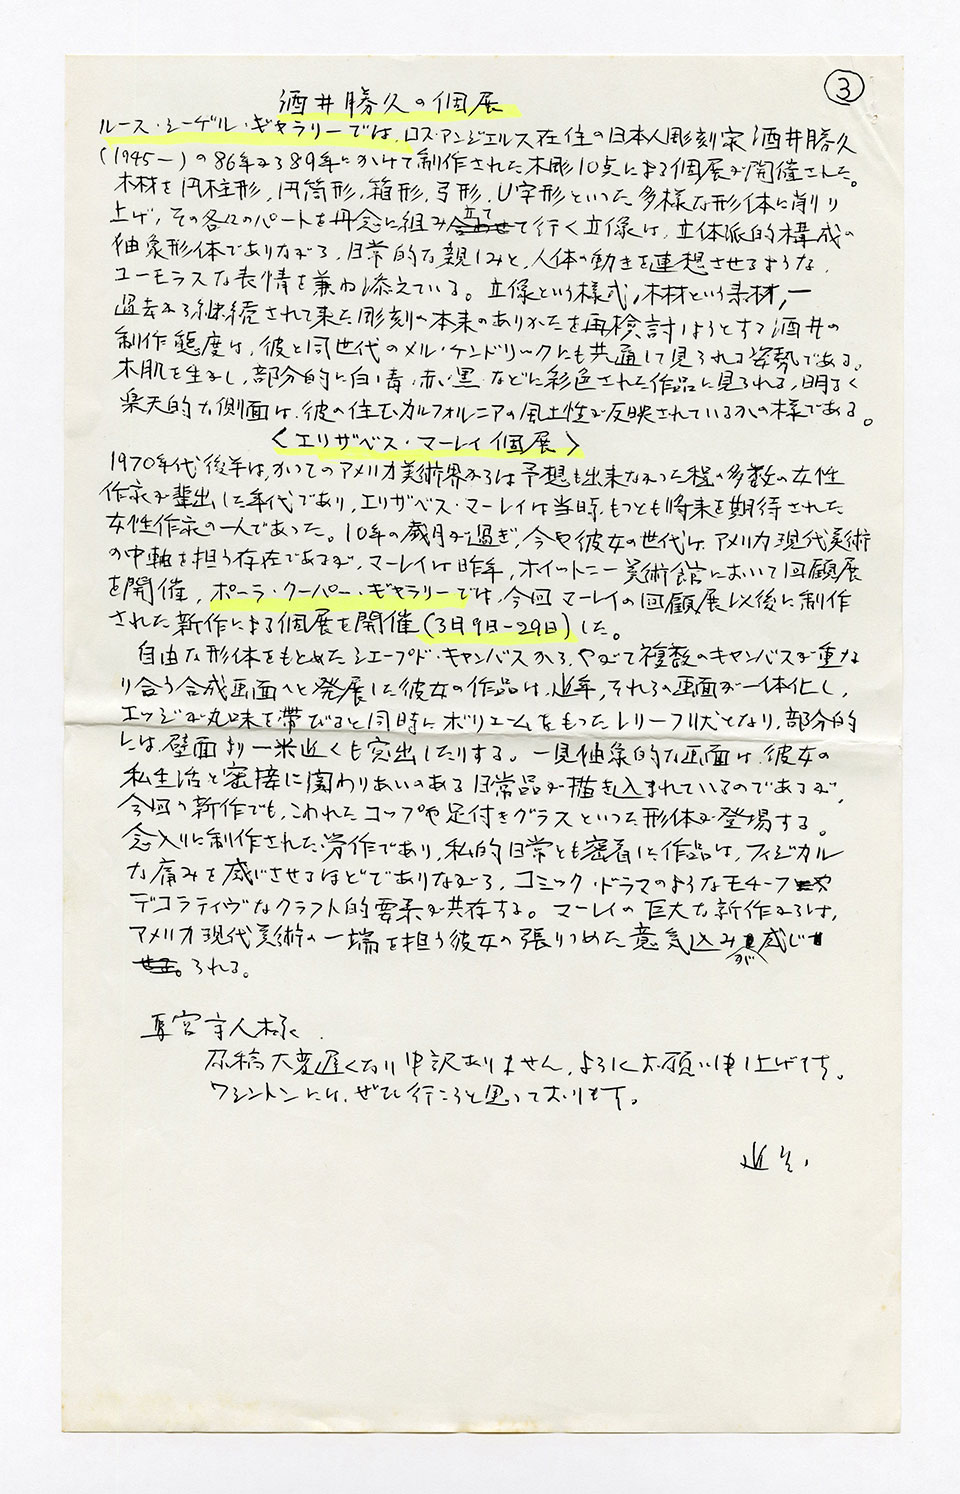 ③
酒井勝久の個展
ルース・シーゲル・ギャラリーでは、ロス・アンジェルス在住の日本人彫刻家酒井勝久
(1945ー)の86年から89年にかけて制作された木彫10点による個展が開催された。
木材を円柱形、円筒形、箱形、弓形、U字形といった多様な形体に削り
上げ、その各々のパートを丹念に組み立てて行く立像は、立体派的構成の
抽象形体でありながら、日常的な親しみと、人体の動きを連想させるような、
ユーモラスな表情を兼ね添えている。立像という様式、木材という素材、ー
過去から継続されて来た彫刻の本来のありかたを再検討しようとする酒井の
制作態度は、彼と同世代のメル・ケンドリックにも共通して見られる姿勢である。
木肌を生かし、部分的に白・青・赤・黒などに彩色された作品に見られる、明るく
楽天的な側面は、彼の住むカルフォルニアの風土性が反映されているかの様である。
〈エリザベス・マーレイ個展〉
1970年代後半は、かつてのアメリカ美術界からは予想も出来なかった程の多数の女性
作家が輩出した年代であり、エリザベス・マーレイは当時、もっとも将来を期待された
女性作家の一人であった。10年の歳月が過ぎ、今や彼女の世代は、アメリカ現代美術
の中軸を担う存在であるが、マーレイは昨年、ホイットニー美術館において回顧展
を開催、ポーラ・クーパー・ギャラリーでは、今回マーレイの回顧展以後に制作
された新作による個展を開催(3月9日ー29日)した。
自由な形体をもとめたシェープド・キャンバスから、やがて複数のキャンバスが重な
り合う合成画面へと発展した彼女の作品は、近年、それらの画面が一体化し、
エッジが丸味を帯びると同時にボリュームをもったレリーフ状となり、部分的
には、壁面より一米近くも突出したりする。一見抽象的な画面は、彼女の
私生活と密接に関わりあいのある日常品が描き込まれているのであるが、
今回の新作でも、こわれたコップや足付きグラスといった形体が登場する。
念入りに制作された労作であり、私的日常とも密着した作品は、フィジカル
な痛みを感じさせるほどでありながら、コミック・ドラマのようなモチーフや
デコラティヴなクラフト的要素が共存する。マーレイの巨大な新作からは、
アメリカ現代美術の一端を担う彼女の張りつめた意気込みが感じ
られる。
宮守人様
原稿大変遅くなり申訳ありません。よろしくお願い申し上げます。
ワシントンには、ぜひ行こうと思っております。